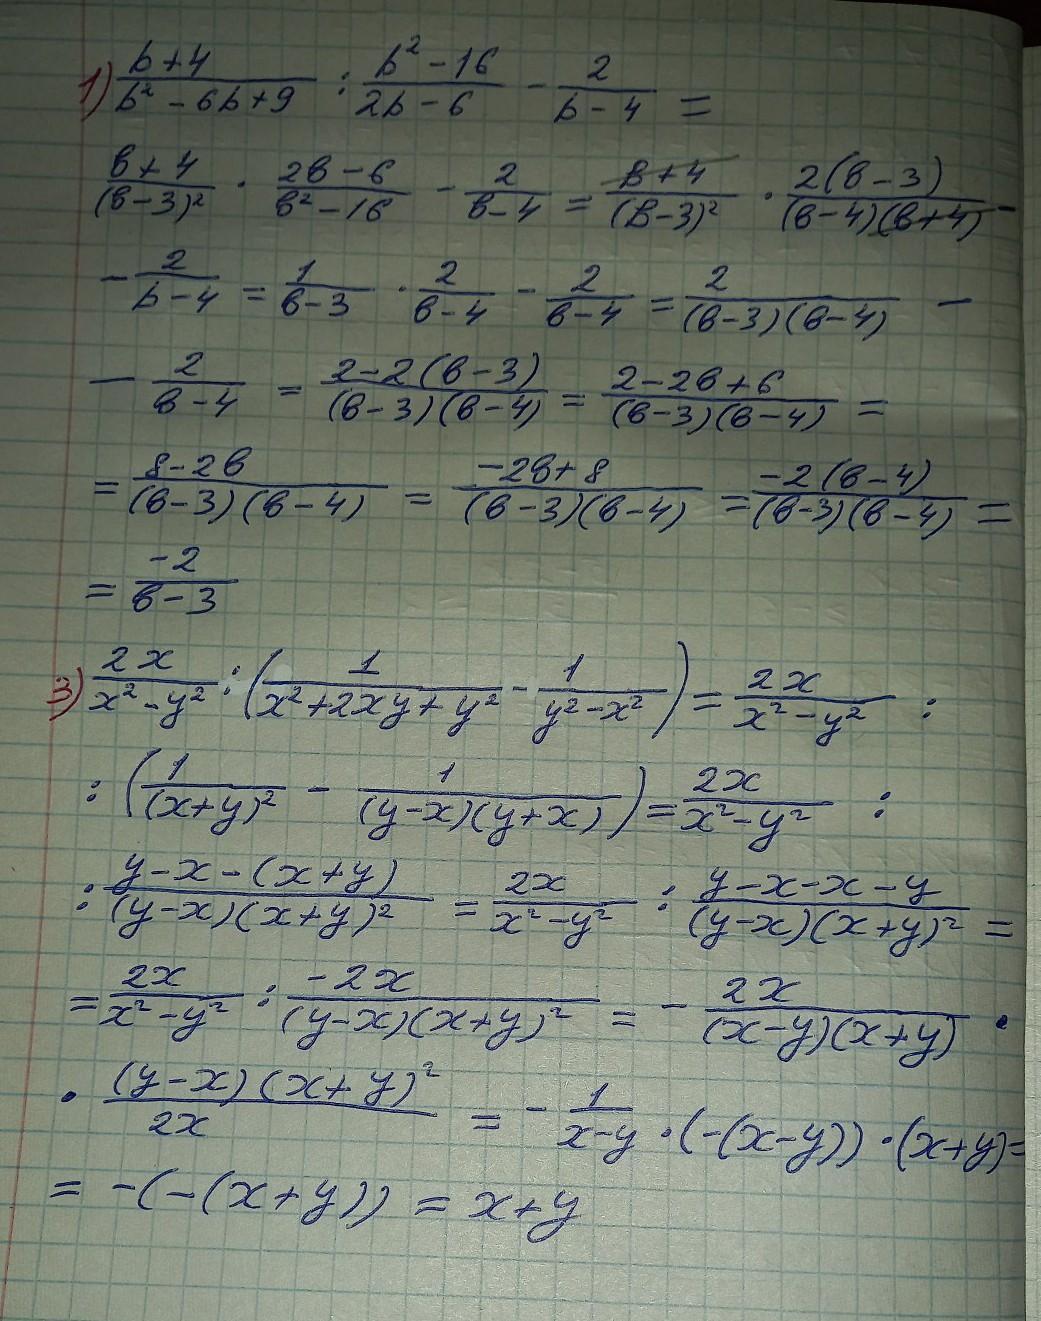 1) (b+4)/(b²-6b+9) : (b²-16)/(2b-6) - 2/(b-4) =
(b+4)/((b-3)²) · (2b-6)/(b²-16) - 2/(b-4) = (b+4)/((b-3)²) · 2(b-3)/((b-4)(b+4)) -
- 2/(b-4) = 1/(b-3) · 2/(b-4) - 2/(b-4) = 2/((b-3)(b-4)) -
- 2/(b-4) = (2-2(b-3))/((b-3)(b-4)) = (2-2b+6)/((b-3)(b-4)) =
= (8-2b)/((b-3)(b-4)) = (-2b+8)/((b-3)(b-4)) = (-2(b-4))/((b-3)(b-4)) =
= (-2)/(b-3)
3) 2x/(x²-y²) : (1/(x²+2xy+y²) - 1/(y²-x²)) = 2x/(x²-y²) :
: (1/((x+y)²) - 1/((y-x)(y+x))) = 2x/(x²-y²) :
: (y-x-(x+y))/((y-x)(x+y)²) = 2x/(x²-y²) : (y-x-x-y)/((y-x)(x+y)²) =
= 2x/(x²-y²) : (-2x)/((y-x)(x+y)²) = - 2x/((x-y)(x+y)) ·
· ((y-x)(x+y)²)/(2x) = - 1/(x-y) · (-(x-y)) · (x+y) =
= -(-(x+y)) = x+y